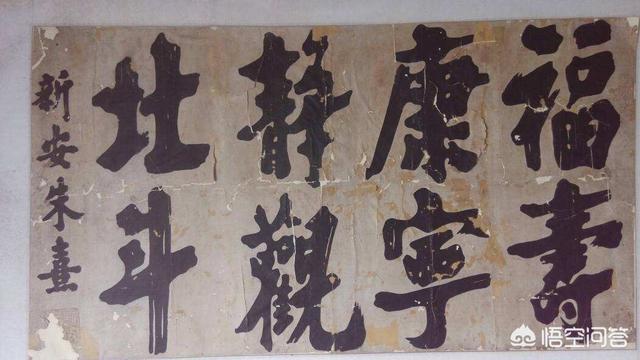 福壽
康寧
靜觀
北斗
新安朱熹
悟空问答